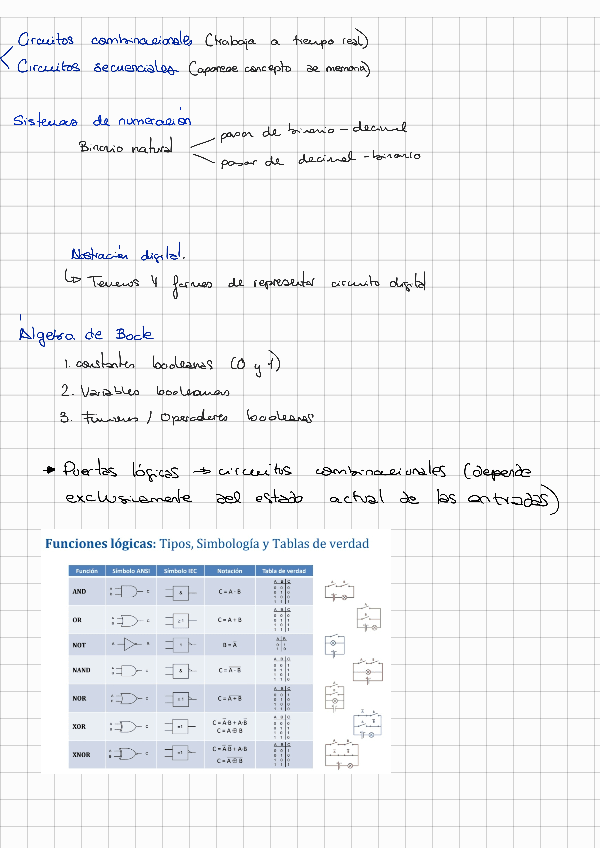 Circuitos combinacionales (trabaja a tiempo real)
Circuitos secuenciales (aparece concepto de memoria)
Sistemas de numeración
Binario natural
pasar de binario - decimal
pasar de decimal - binario
Abstracción digital.
↳ Tenemos 4 formas de representar circuito digital
Álgebra de Boole
1. constantes booleanas (0 y 1)
2. Variables booleanas
3. Funciones / Operadores booleanos
→ Puertas lógicas → circuitos combinacionales (depende
exclusivamente del estado actual de las entradas)
Funciones lógicas: Tipos, Simbología y Tablas de verdad
Función Símbolo ANSI Símbolo IEC Notación Tabla de verdad
AND & C = A · B
OR C = A + B
NOT B = A̅
NAND & C = A̅ ·̅ B̅
NOR C = A̅ +̅ B̅
XOR C = A̅·B + A·B̅
C = A ⊕ B
XNOR C = A̅·B̅ + A·B
C = A̅ ⊕̅ B̅